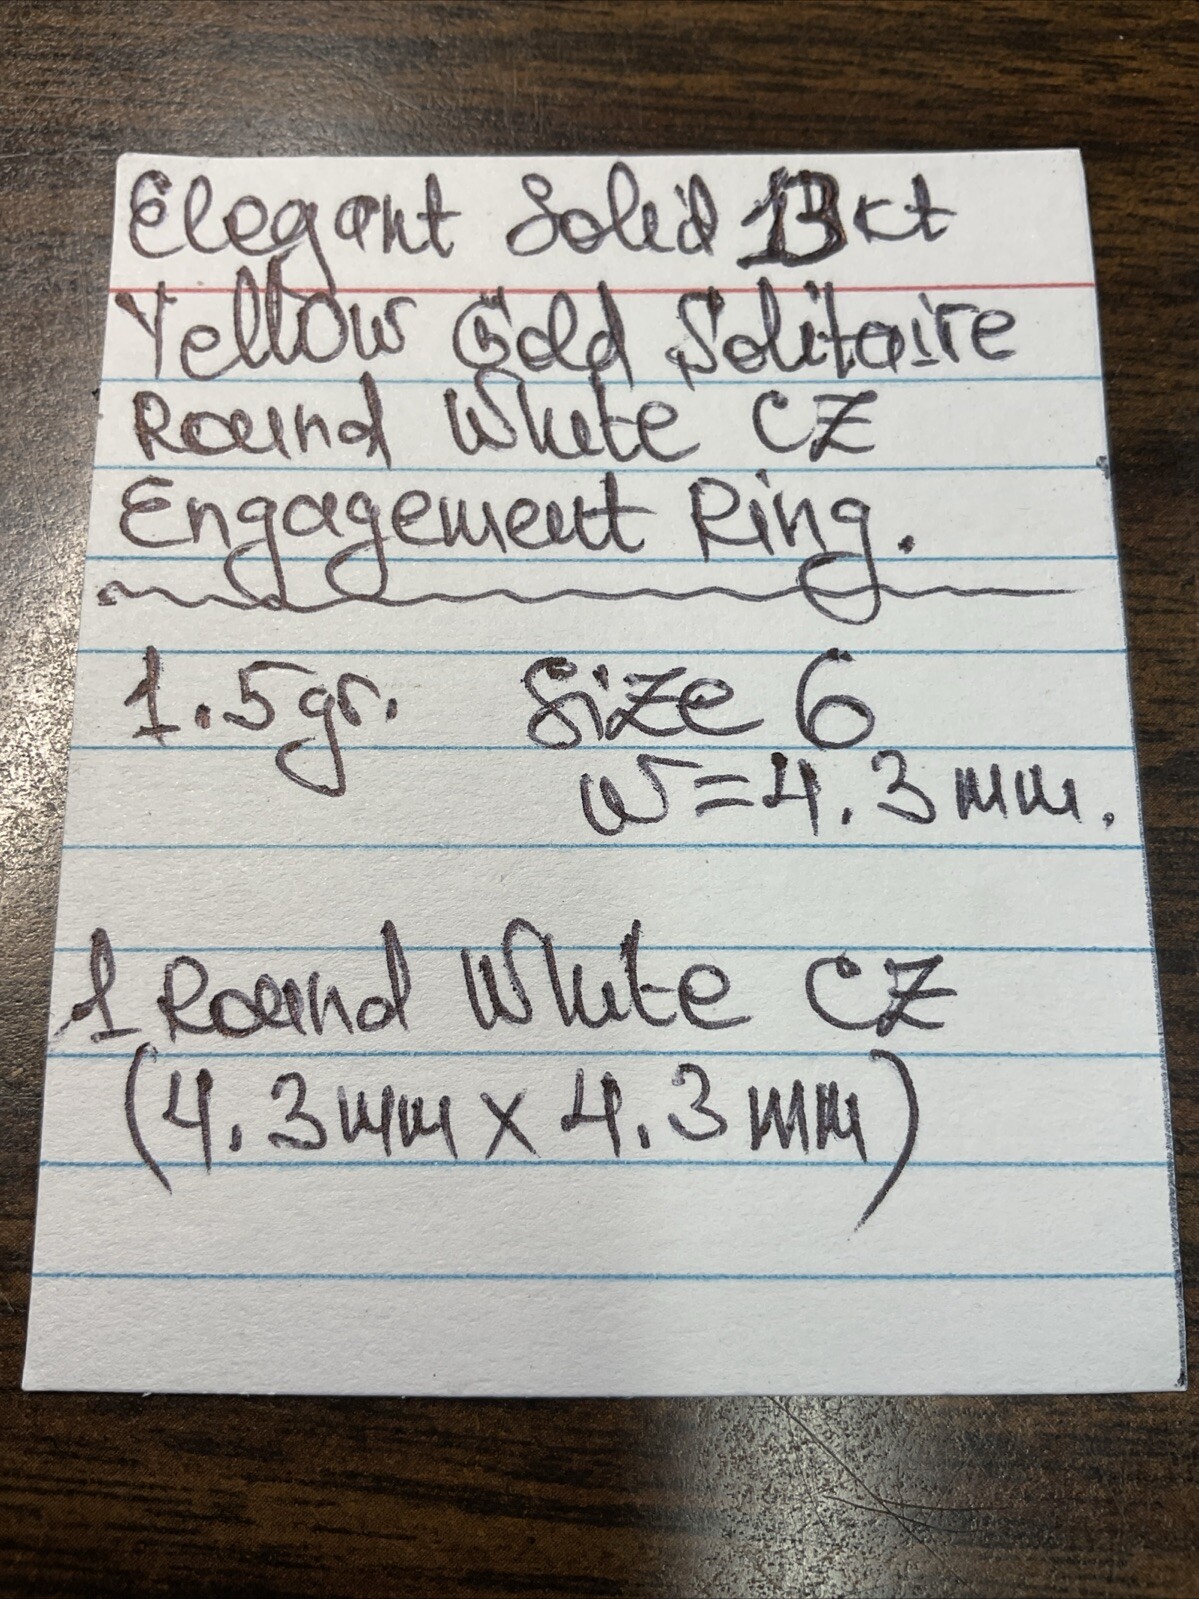 Elegant Solid 13kt
Yellow Gold Solitaire
Round White CZ
Engagement Ring.
1.5gr. Size 6
W=4.3mm.
1 Round White CZ
(4.3mm x 4.3mm)